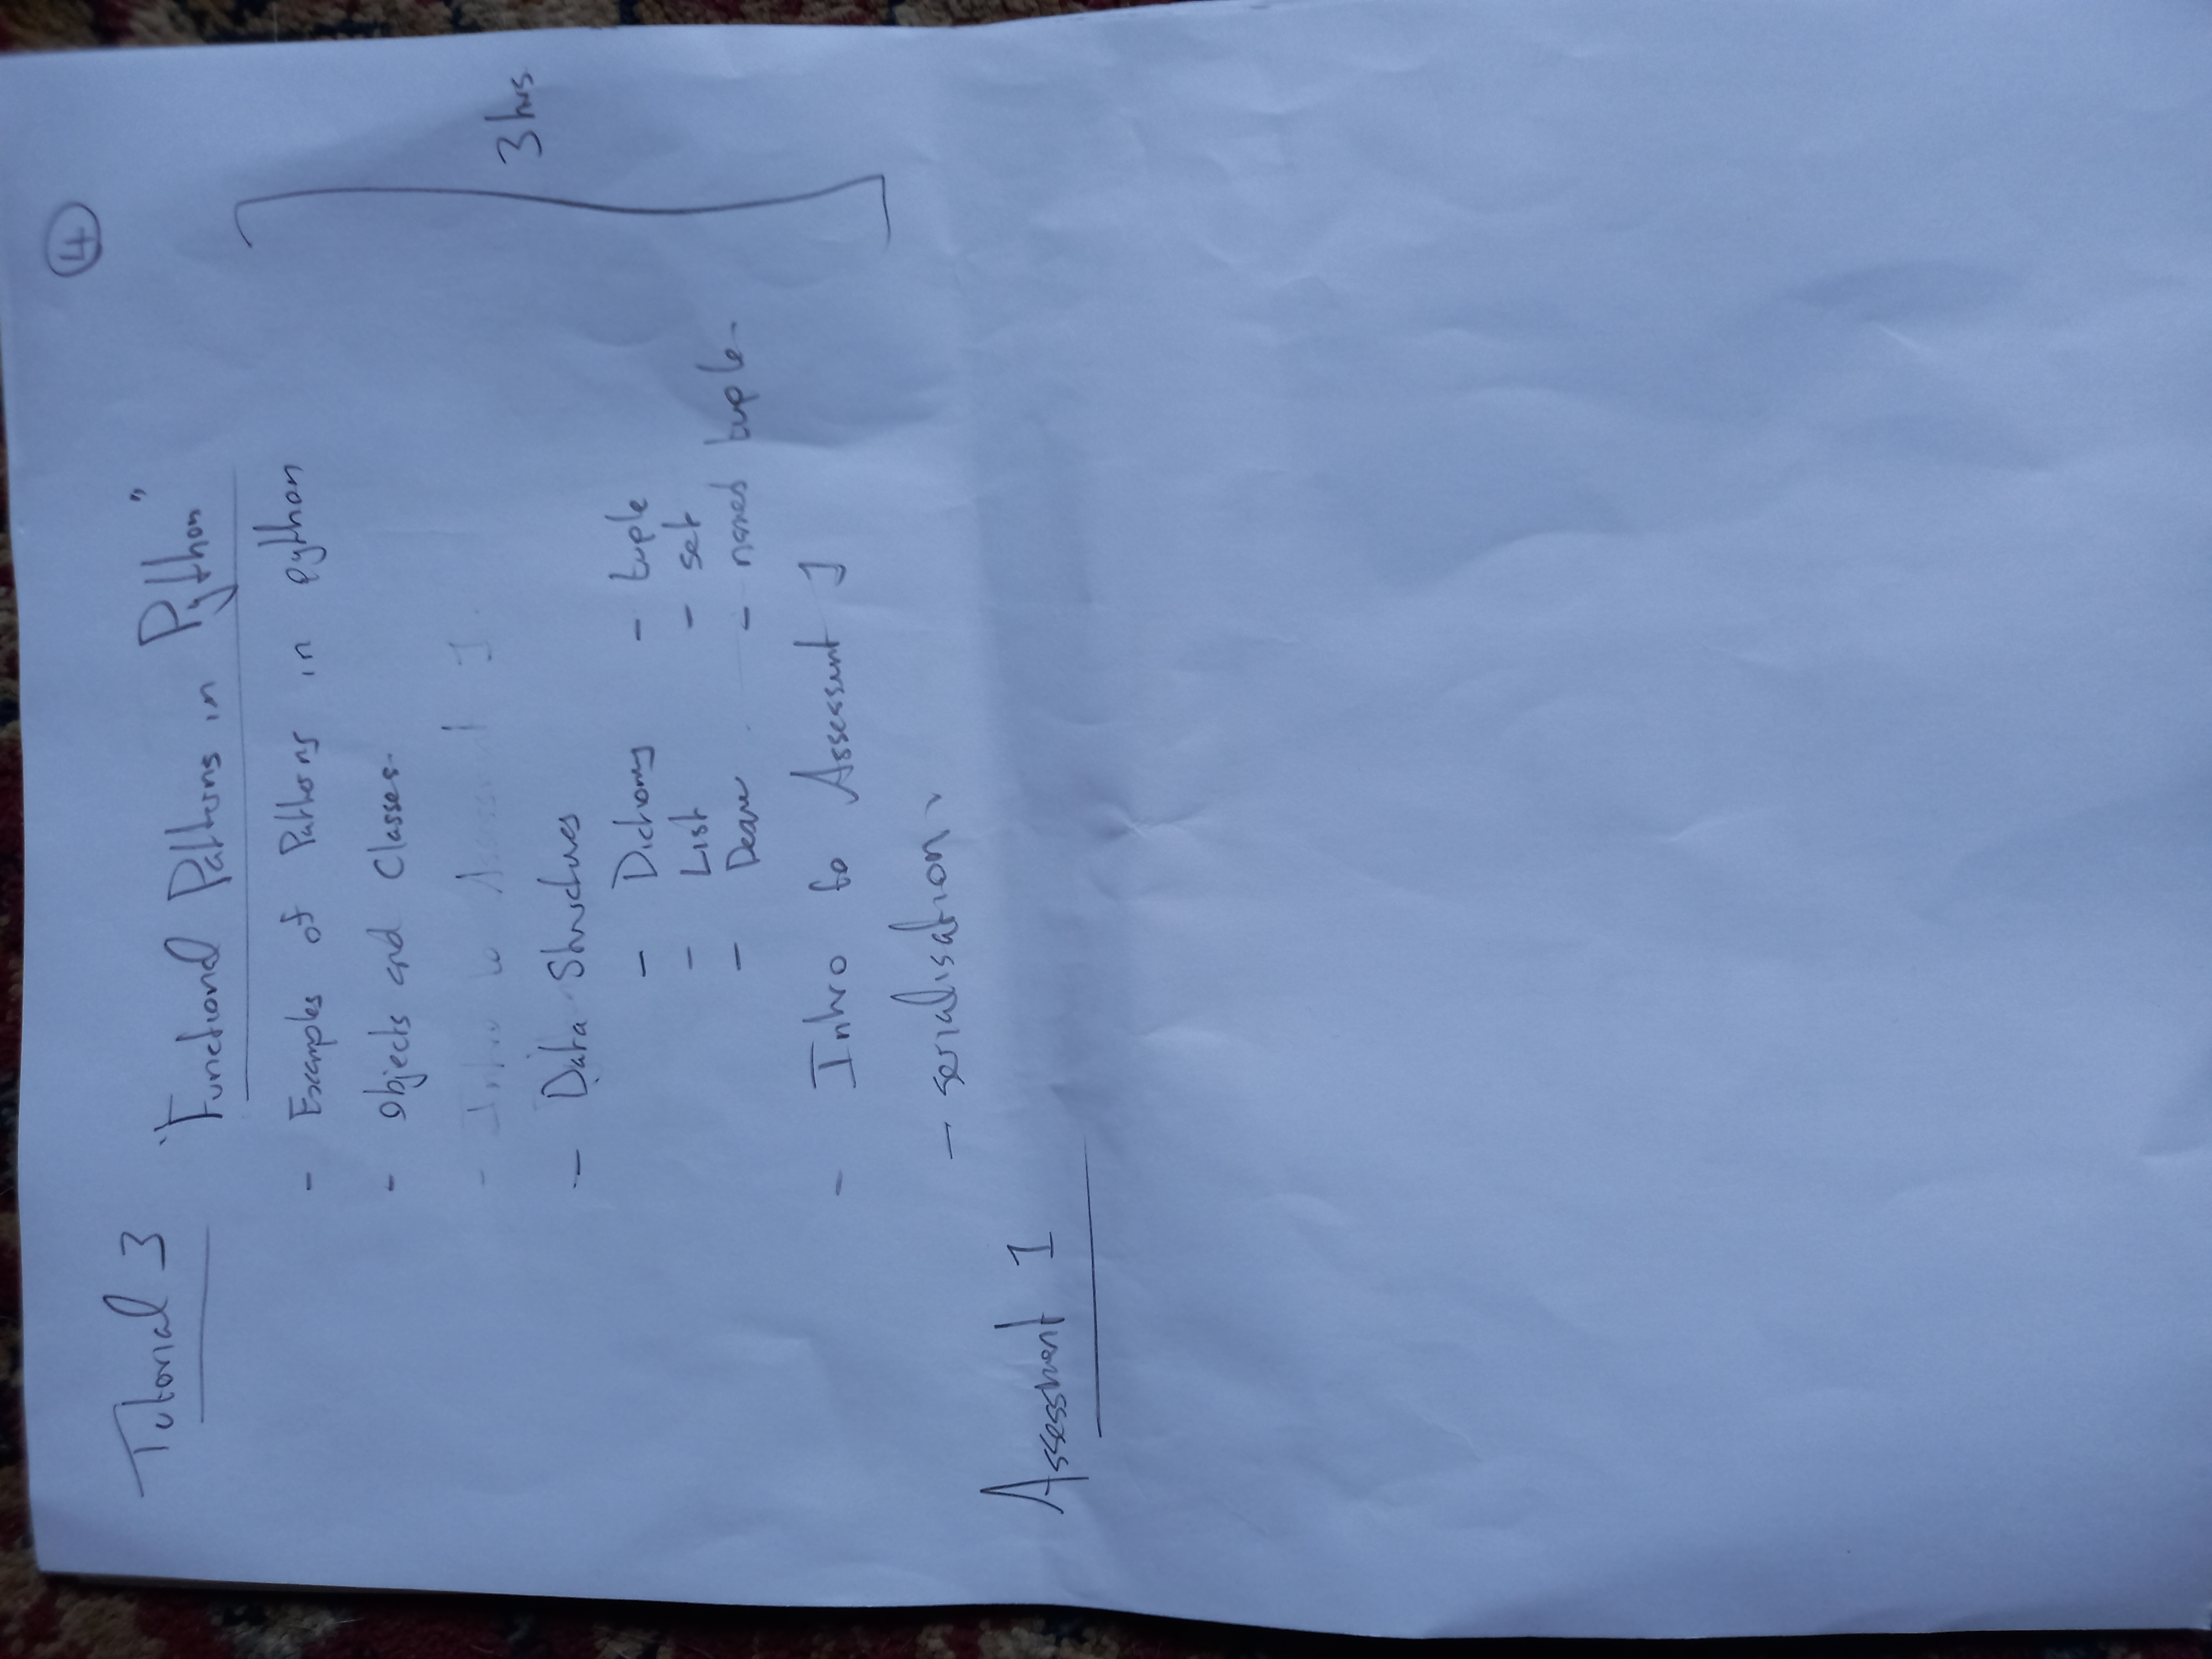 4
Tutorial 3
"Functional Patterns in Python"
- Examples of Patterns in python
- Objects and Classes.
- Intro to Assessment 1.
3 hrs
- Data Structures
- Dictionary - tuple
- List - set
- - named tuple.
- Intro to Assessment 1
- serialisation.
Assessment 1